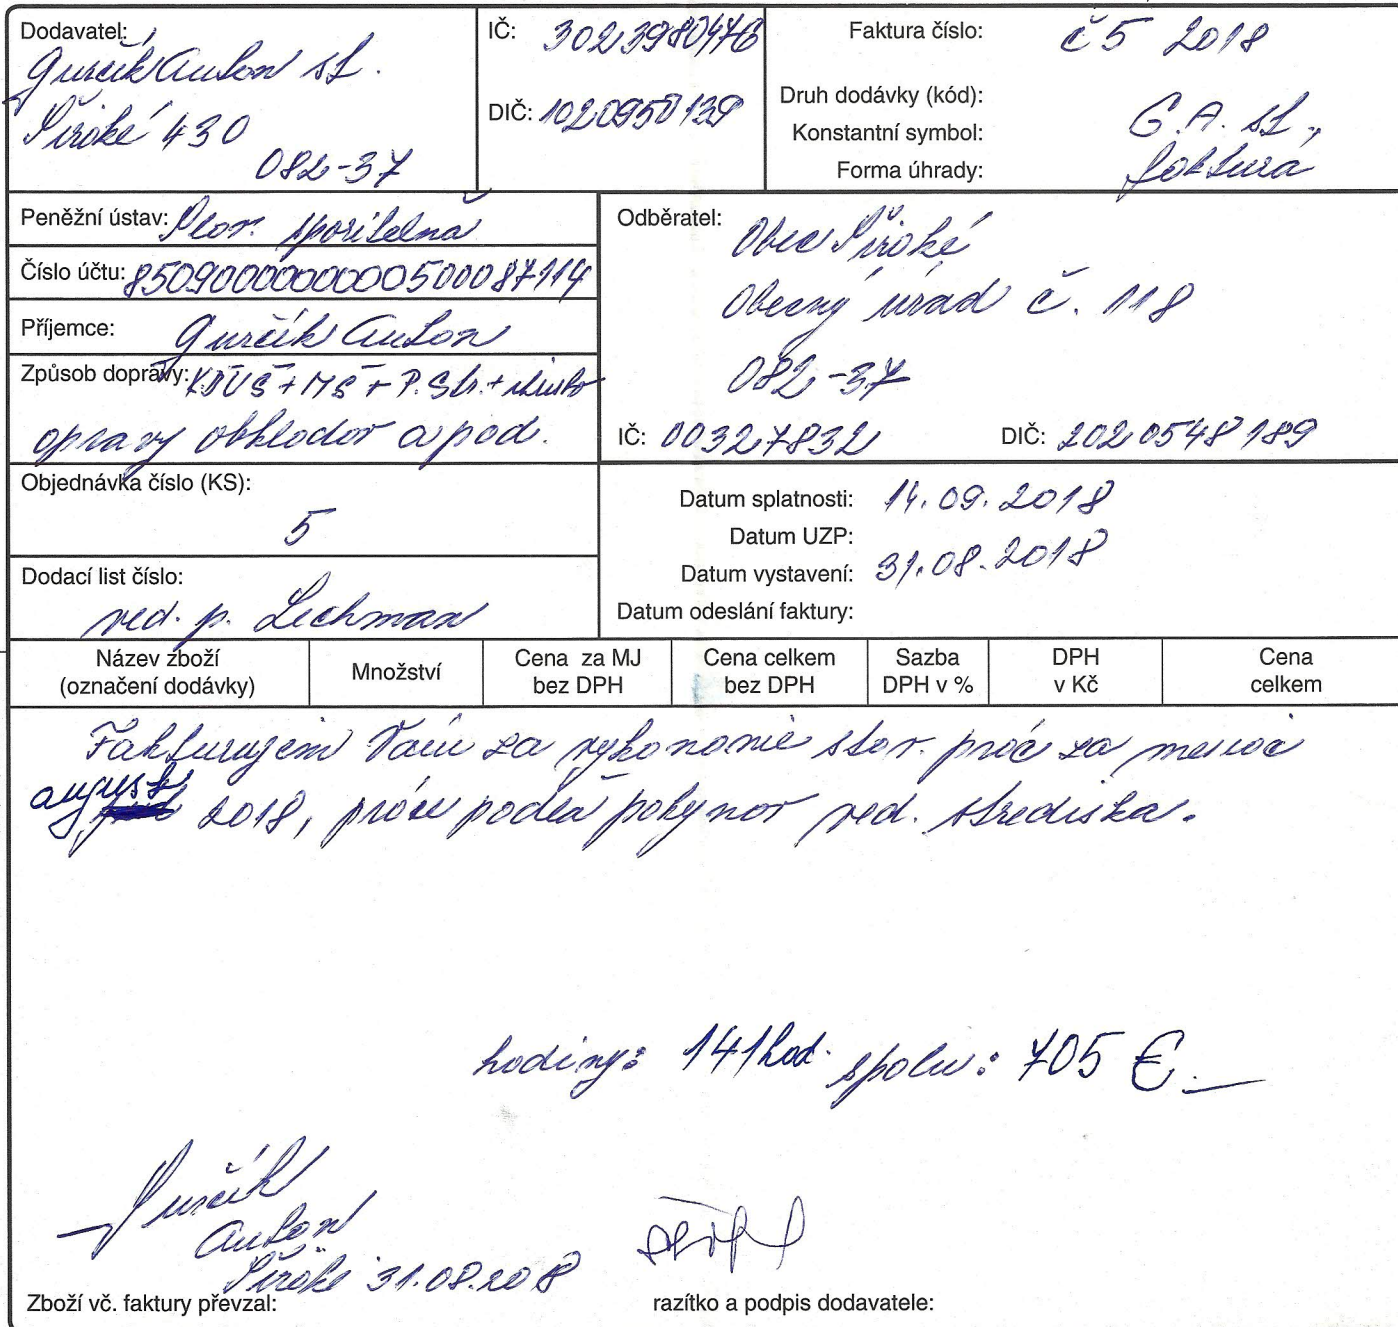 Dodavatel:
Gurčík Anton st.
Široké 430
082-37
IČ: 3023980476
DIČ: 1020950139
Faktura číslo: č5 2018
Druh dodávky (kód):
Konstantní symbol: G.A. st.,
Forma úhrady: faktura
Peněžní ústav: Slov. sporitelna
Číslo účtu: 8509000000000500087114
Příjemce: Gurčík Anton
Způsob dopravy: + MŠ + P. Str. +
opravy obkladov a pod.
Odběratel:
Obec Široké
Obecný úrad č. 118
082-37
IČ: 00327832
DIČ: 2020548189
Objednávka číslo (KS):
5
Dodací list číslo:
ved. p. Lechman
Datum splatnosti: 14.09.2018
Datum UZP:
Datum vystavení: 31.08.2018
Datum odeslání faktury:
Název zboží (označení dodávky)
Množství
Cena za MJ bez DPH
Cena celkem bez DPH
Sazba DPH v %
DPH v Kč
Cena celkem
Fakturujem Vám za vykonanie stav. prác za mesiac
august 2018, práce podľa pokynov ved. strediska.
hodiny: 141 hod. spolu: 705 €.
Gurčík
Anton
Široké 31.08.2018
Zboží vč. faktury převzal:
razítko a podpis dodavatele: